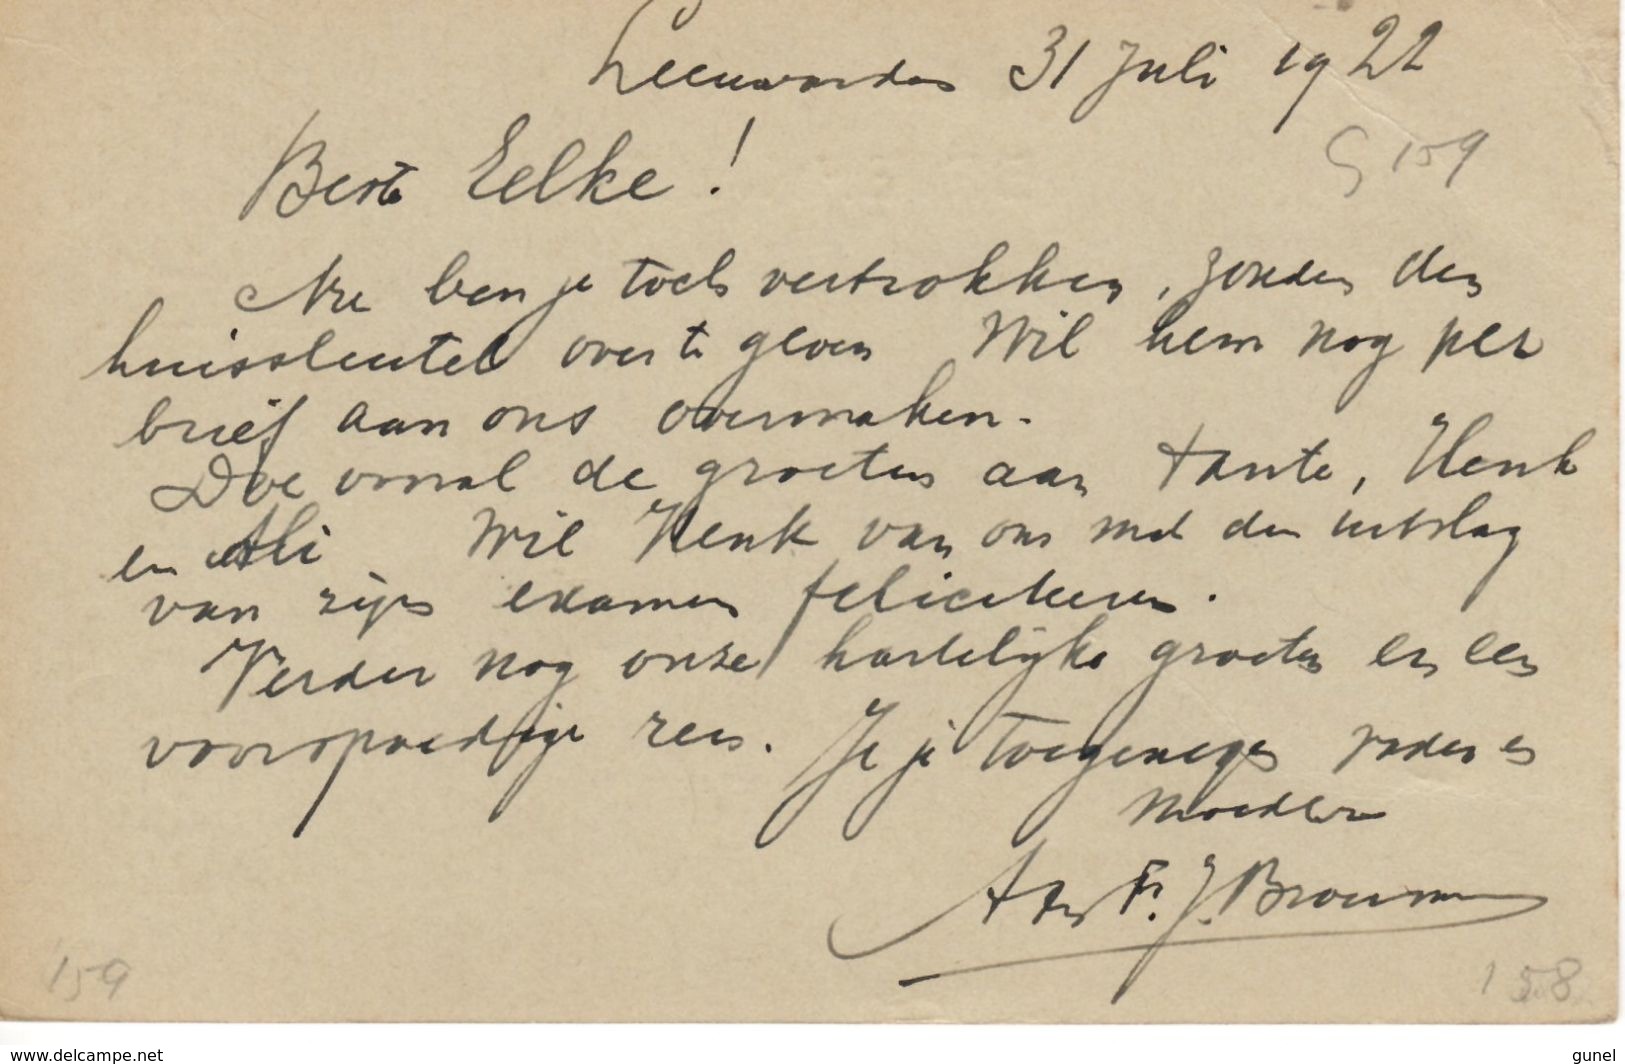 Leeuwarden 31 Juli 1922
G 159
Beste Eelke!
Nu ben je toch vertrokken, zonder den
huissleutel over te geven Wil hem nog per
brief aan ons overmaken.
Doe vooral de groeten aan tante, Henk
en Ali Wil Henk van ons met den uitslag
van zijn examen feliciteren.
Verder nog onze hartelijke groeten en een
voorspoedige reis. Je je toegenegen vader en
Moeder
F. J. Brouwer
159
158
www.delcampe.net
gunel